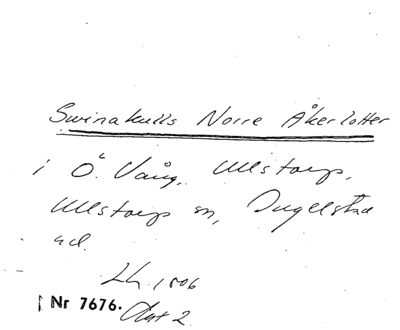 Swinakulls Norre Åkerlotter
i Ö. Vång, Ullstorp,
Ullstorps sn, Ingelstad
hd.
Lh. 1806
Nr 7676. Akt 2